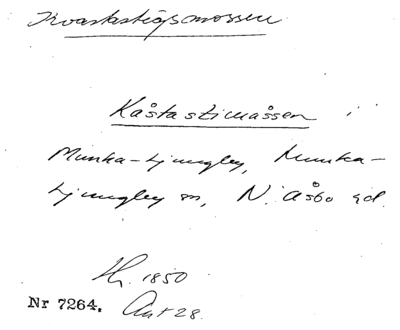 Kvastastigsmossen
Kåstastimåssen i
Munka-Ljungby, Munka-
Ljungby sn, N. Åsbo hd.
Hr. 1850
Nr 7264. Ant 28.